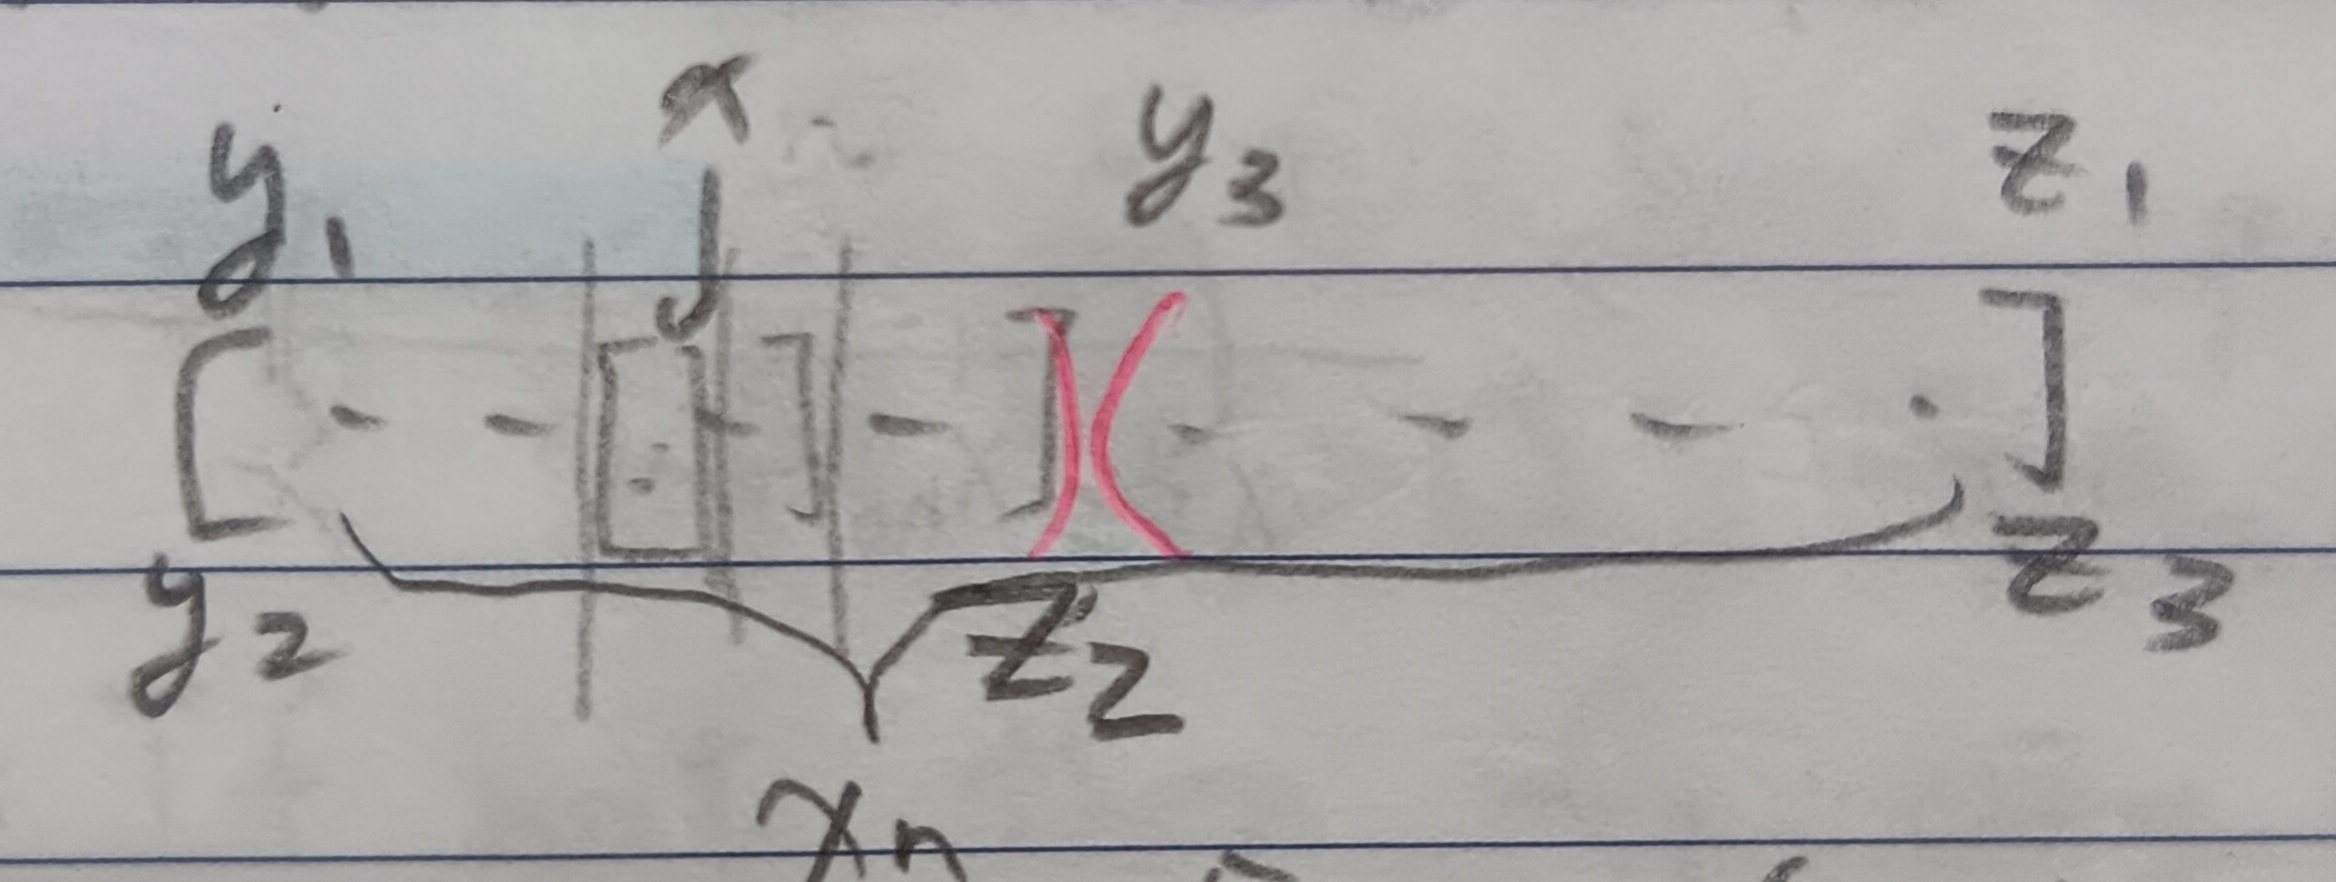 y₁ x y₃ z₁
[ - - [ ] - ] - ] ) ( - - - . ]
y₂ z₂ z₃
xₙ